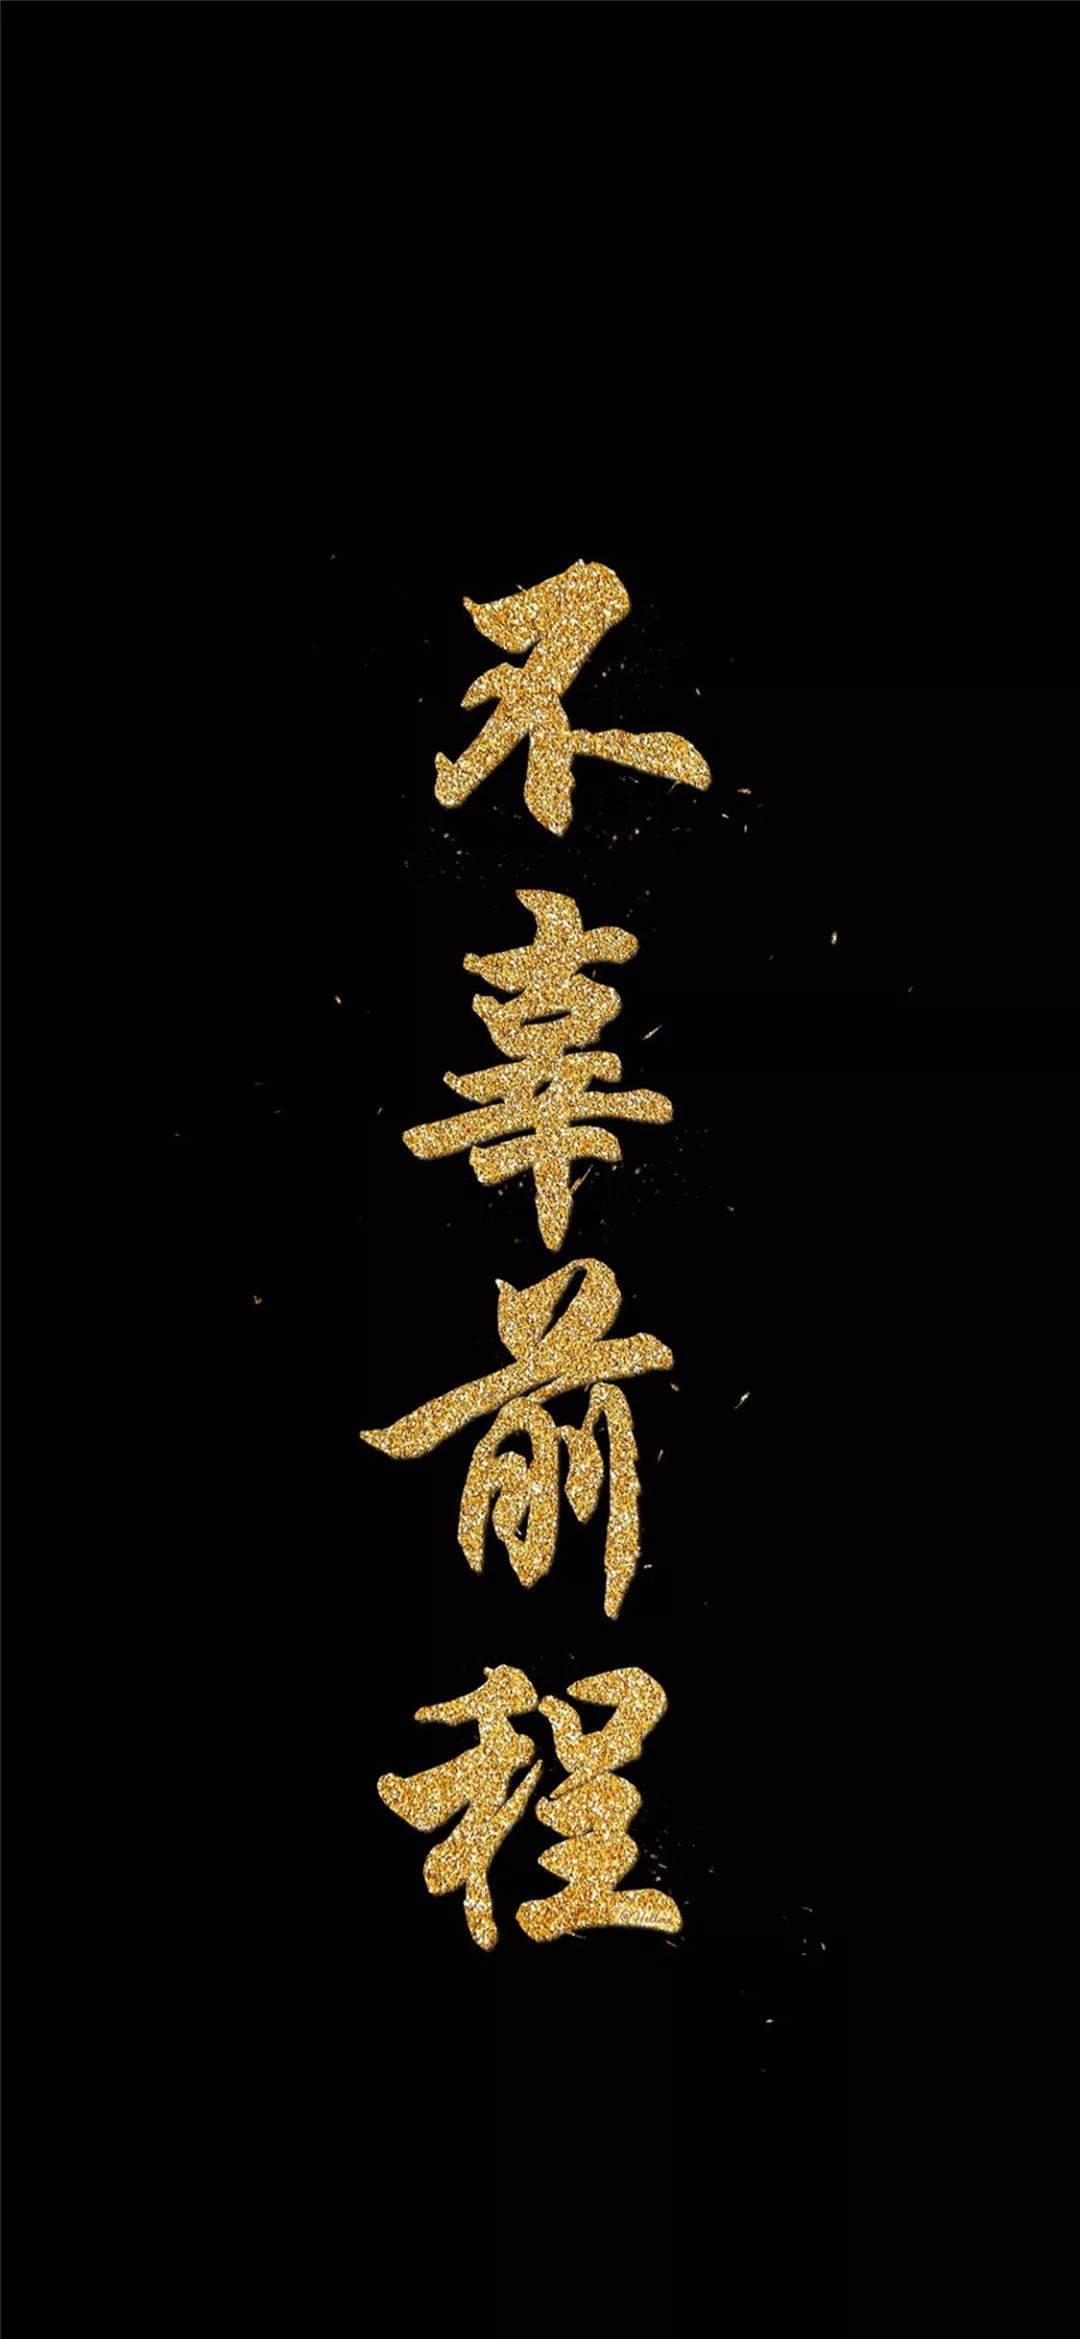 不辜前程